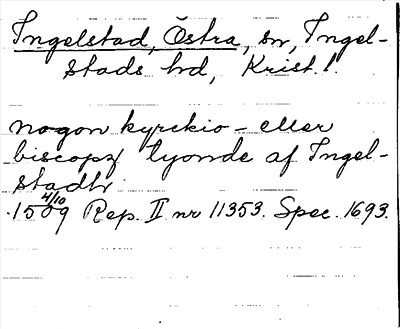 Ingelstad, Östra, sn, Ingel-
stads hd, Krist. l.
nogon kyrckio- eller
biscopz tyonde af Ingel-
stadh
1509 4/10 Rep. II nr 11353. Spec. 1693.